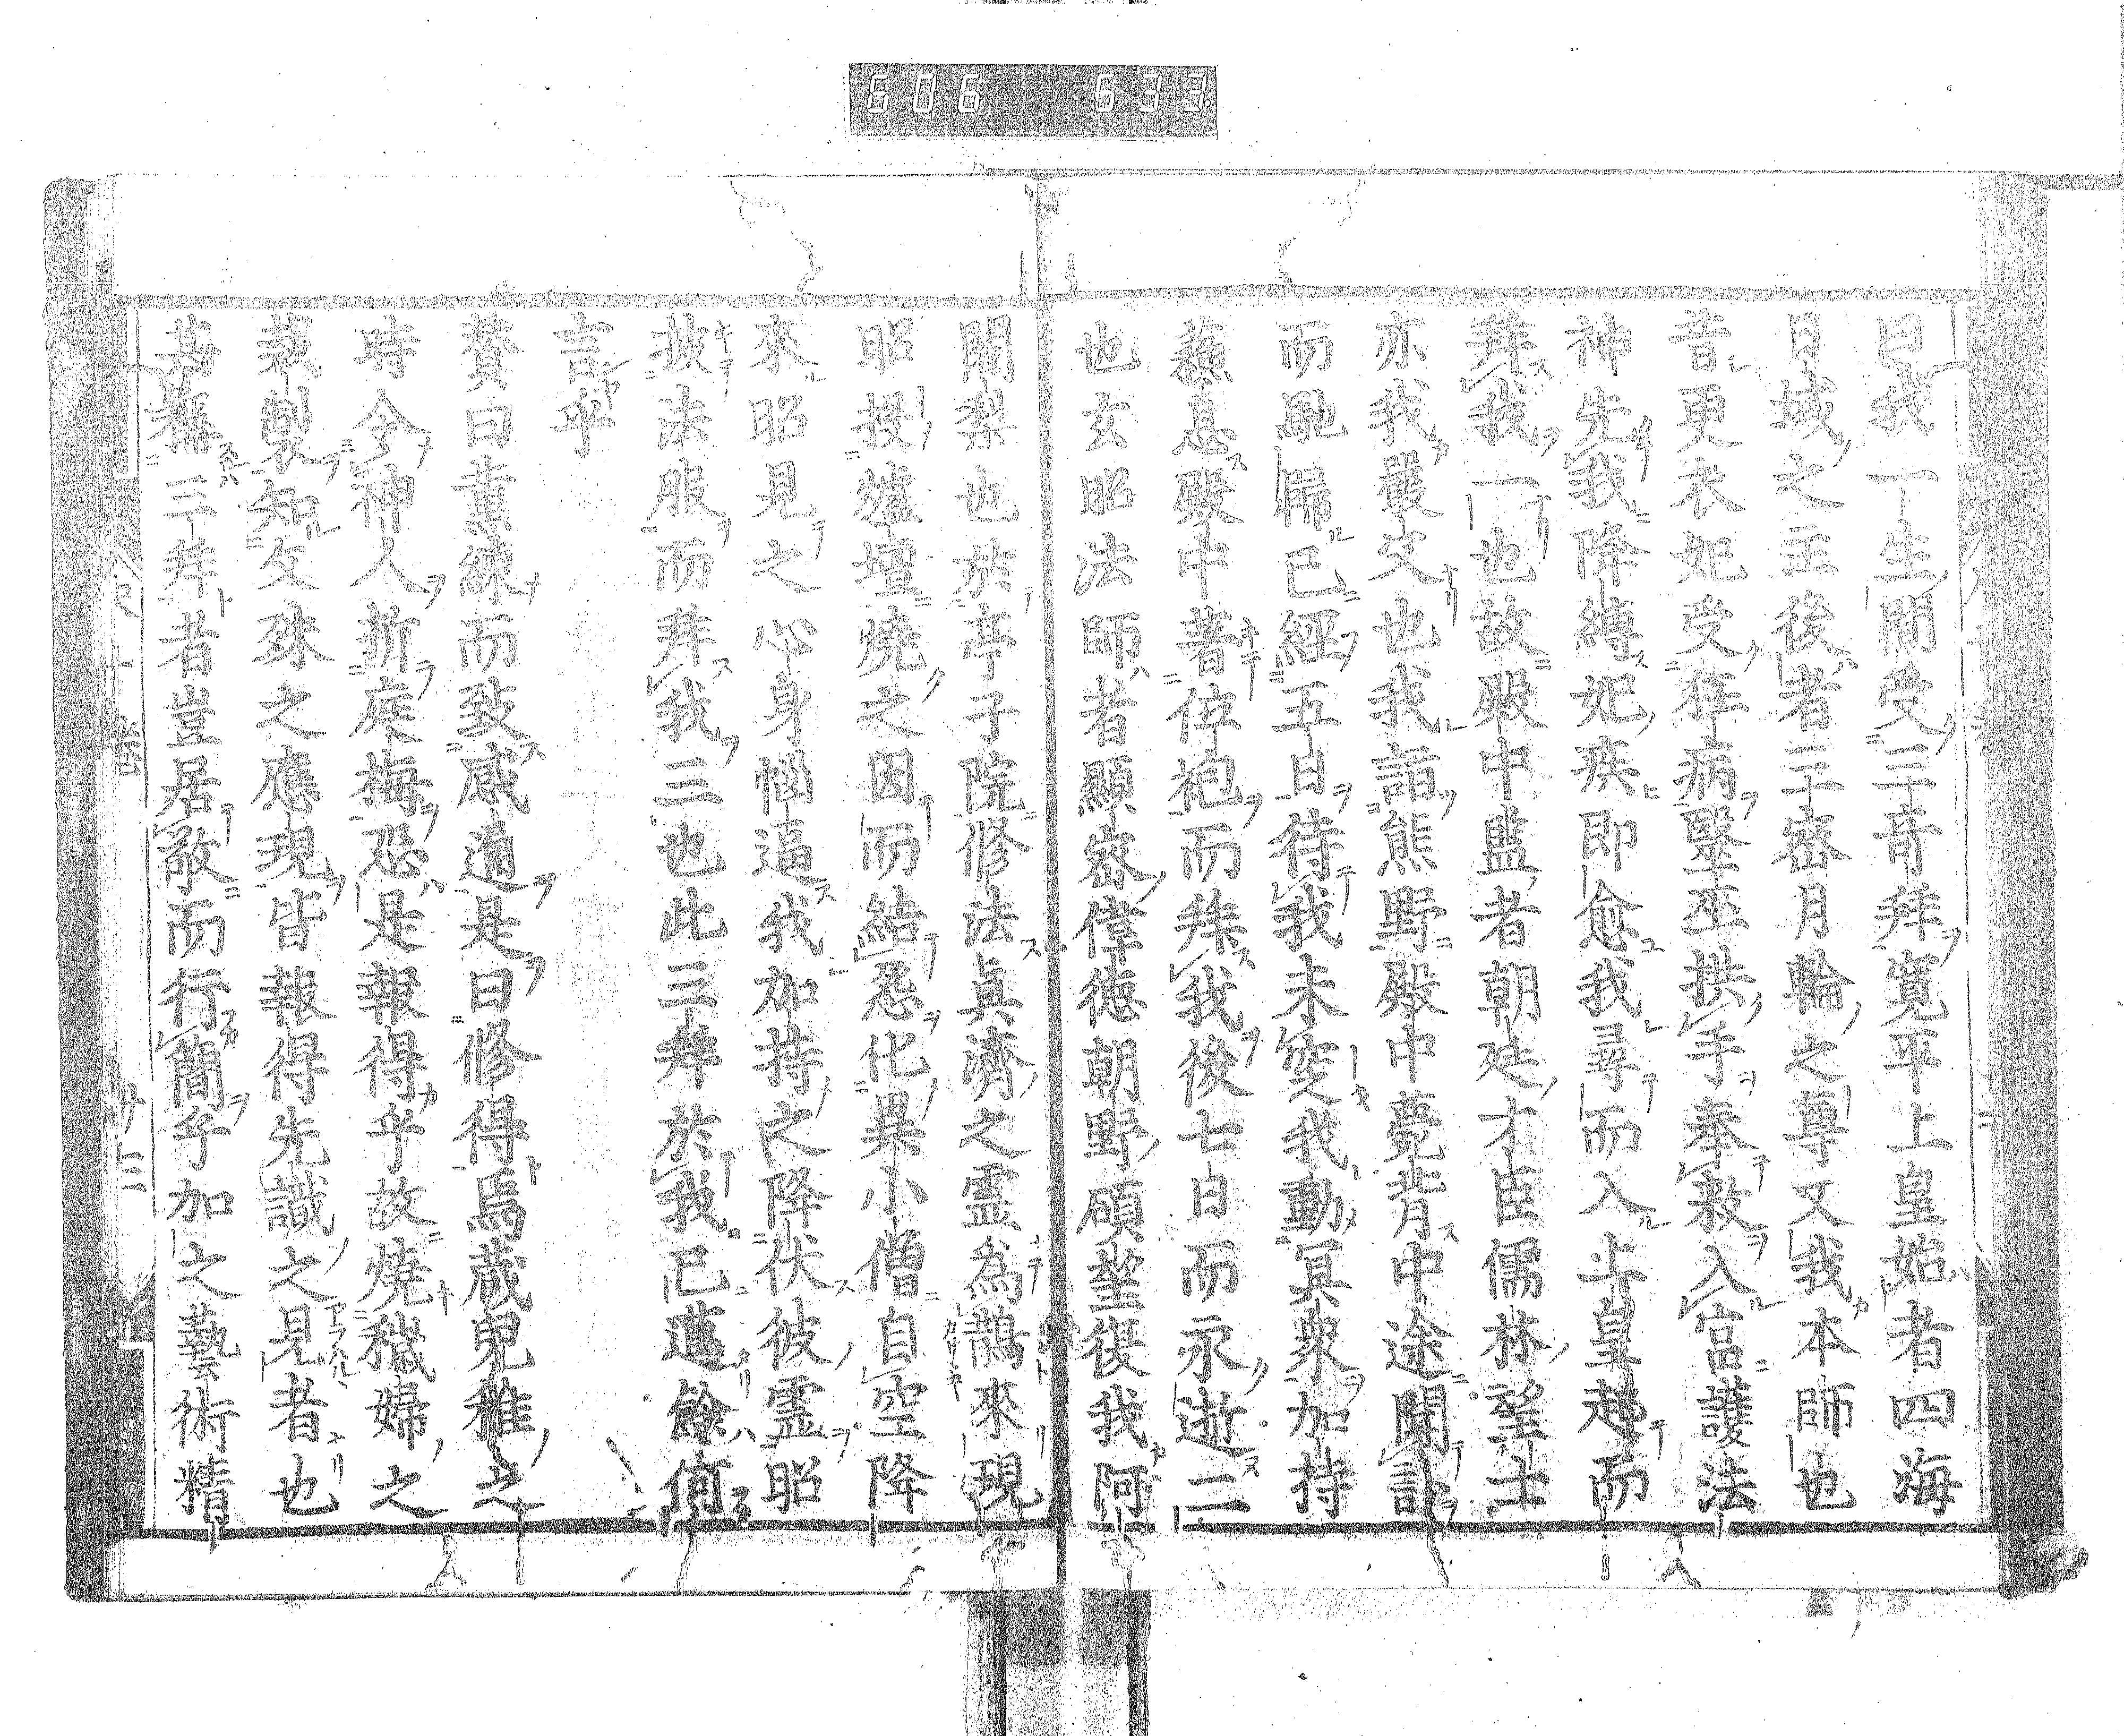 606 633
曰我一生間受三奇拜寛平上皇始者四海
日域之主後者三密月輪之尊又我本師也
昔更衣妃受狂病醫巫拱手奉敕入宮護法
神先我降縛妃疾即愈我尋而入上皇起而
拜我一也故殿中監者朝廷才臣儒林望士
亦我嚴父也我詣熊野殿中薨背中途聞訃
而馳歸已經五日待我未窆我動冥衆加持
蘇息殿中著位袍而拜我後七日而永逝二
也玄昭法師者顯密偉德朝野碩望復我阿
闍梨也於亭子院修法眞濟之靈爲鵲來現
昭投爐壇燒之因而結怨化異小僧自空降
來昭見之心身惱逼我加持之降伏彼靈昭
披法服而拜我三也此三拜於我已邁餘何
言乎
贊曰薫練而致感通是曰修得焉蔵兒稚之
時令神人折庭梅恐是報得乎故燒穢婦之
執製知文殊之應現皆報得先識之見者也
其稱三拜者豈居敬而行簡乎加之藝術精